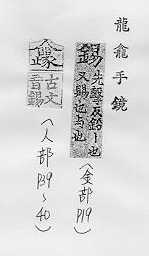 龍龕手鏡
錫
先擊反鈆丨也
又賜也与也
(金部 P19)
古文
音錫
(人部 P39~40)